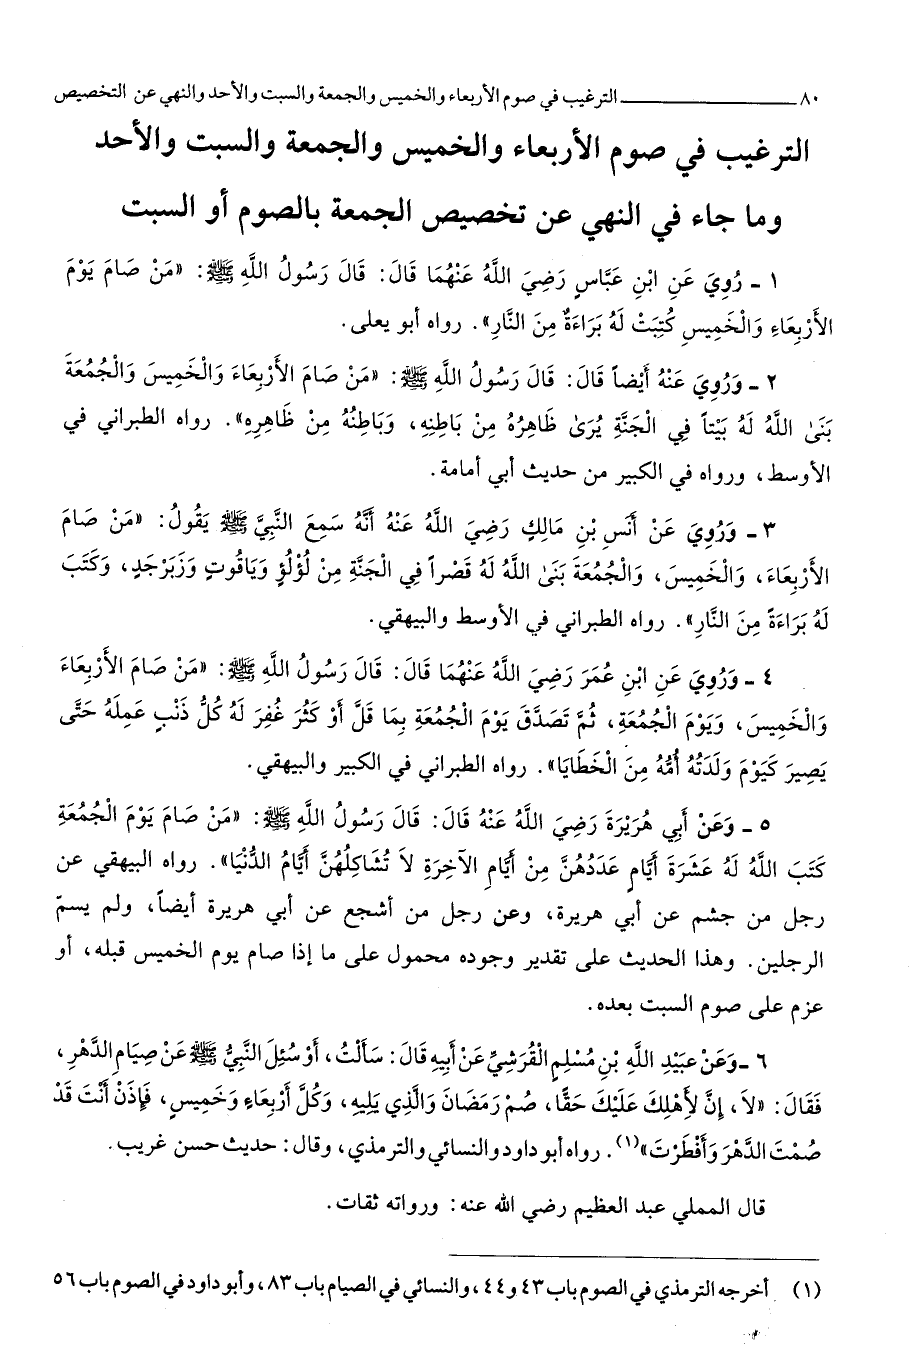 ٨٠ ــــــــــــــــ الترغيب في صوم الأربعاء والخميس والجمعة والسبت والأحد والنهي عن التخصيص
الترغيب في صوم الأربعاء والخميس والجمعة والسبت والأحد
وما جاء في النهي عن تخصيص الجمعة بالصوم أو السبت
١ ـ رُوِيَ عَنِ ابْنِ عَبَّاسٍ رَضِيَ اللَّهُ عَنْهُمَا قَالَ: قَالَ رَسُولُ اللَّهِ ﷺ: «مَنْ صَامَ يَوْمَ
الأَرْبِعَاءِ وَالْخَمِيسِ كُتِبَتْ لَهُ بَرَاءَةٌ مِنَ النَّارِ». رواه أبو يعلى.
٢ ـ وَرُوِيَ عَنْهُ أَيْضاً قَالَ: قَالَ رَسُولُ اللَّهِ ﷺ: «مَنْ صَامَ الأَرْبِعَاءَ وَالْخَمِيسَ وَالْجُمُعَةَ
بَنَىٰ اللَّهُ لَهُ بَيْتاً فِي الْجَنَّةِ يُرَىٰ ظَاهِرُهُ مِنْ بَاطِنِهِ، وَبَاطِنُهُ مِنْ ظَاهِرِهِ». رواه الطبراني في
الأوسط، ورواه في الكبير من حديث أبي أمامة.
٣ ـ وَرُوِيَ عَنْ أَنَسِ بْنِ مَالِكٍ رَضِيَ اللَّهُ عَنْهُ أَنَّهُ سَمِعَ النَّبِيَّ ﷺ يَقُولُ: «مَنْ صَامَ
الأَرْبِعَاءَ، وَالْخَمِيسَ، وَالْجُمُعَةَ بَنَىٰ اللَّهُ لَهُ قَصْراً فِي الْجَنَّةِ مِنْ لُؤْلُؤٍ وَيَاقُوتٍ وَزَبَرْجَدٍ، وَكَتَبَ
لَهُ بَرَاءَةً مِنَ النَّارِ». رواه الطبراني في الأوسط والبيهقي.
٤ ـ وَرُوِيَ عَنِ ابْنِ عُمَرَ رَضِيَ اللَّهُ عَنْهُمَا قَالَ: قَالَ رَسُولُ اللَّهِ ﷺ: «مَنْ صَامَ الأَرْبِعَاءَ
وَالْخَمِيسَ، وَيَوْمَ الْجُمُعَةِ، ثُمَّ تَصَدَّقَ يَوْمَ الْجُمُعَةِ بِمَا قَلَّ أَوْ كَثُرَ غُفِرَ لَهُ كُلُّ ذَنْبٍ عَمِلَهُ حَتَّى
يَصِيرَ كَيَوْمَ وَلَدَتْهُ أُمُّهُ مِنَ الْخَطَايَا». رواه الطبراني في الكبير والبيهقي.
٥ ـ وَعَنْ أَبِي هُرَيْرَةَ رَضِيَ اللَّهُ عَنْهُ قَالَ: قَالَ رَسُولُ اللَّهِ ﷺ: «مَنْ صَامَ يَوْمَ الْجُمُعَةِ
كَتَبَ اللَّهُ لَهُ عَشَرَةَ أَيَّامٍ عَدَدُهُنَّ مِنْ أَيَّامِ الآخِرَةِ لاَ تُشَاكِلُهُنَّ أَيَّامُ الدُّنْيَا». رواه البيهقي عن
رجل من جشم عن أبي هريرة، وعن رجل من أشجع عن أبي هريرة أيضاً، ولم يسمّ
الرجلين. وهذا الحديث على تقدير وجوده محمول على ما إذا صام يوم الخميس قبله، أو
عزم على صوم السبت بعده.
٦ ـ وَعَنْ عُبَيْدِ اللَّهِ بْنِ مُسْلِمٍ الْقُرَشِيِّ عَنْ أَبِيهِ قَالَ: سَأَلْتُ، أَوْ سُئِلَ النَّبِيُّ ﷺ عَنْ صِيَامِ الدَّهْرِ،
فَقَالَ: «لاَ، إِنَّ لأَهْلِكَ عَلَيْكَ حَقًّا، صُمْ رَمَضَانَ وَالَّذِي يَلِيهِ، وَكُلَّ أَرْبِعَاءٍ وَخَمِيسٍ، فَإِذَنْ أَنْتَ قَدْ
صُمْتَ الدَّهْرَ وَأَفْطَرْتَ»(١). رواه أبو داود والنسائي والترمذي، وقال: حديث حسن غريب.
قال المملي عبد العظيم رضي الله عنه: ورواته ثقات.
(١) أخرجه الترمذي في الصوم باب ٤٣ و ٤٤، والنسائي في الصيام باب ٨٣، وأبو داود في الصوم باب ٥٦